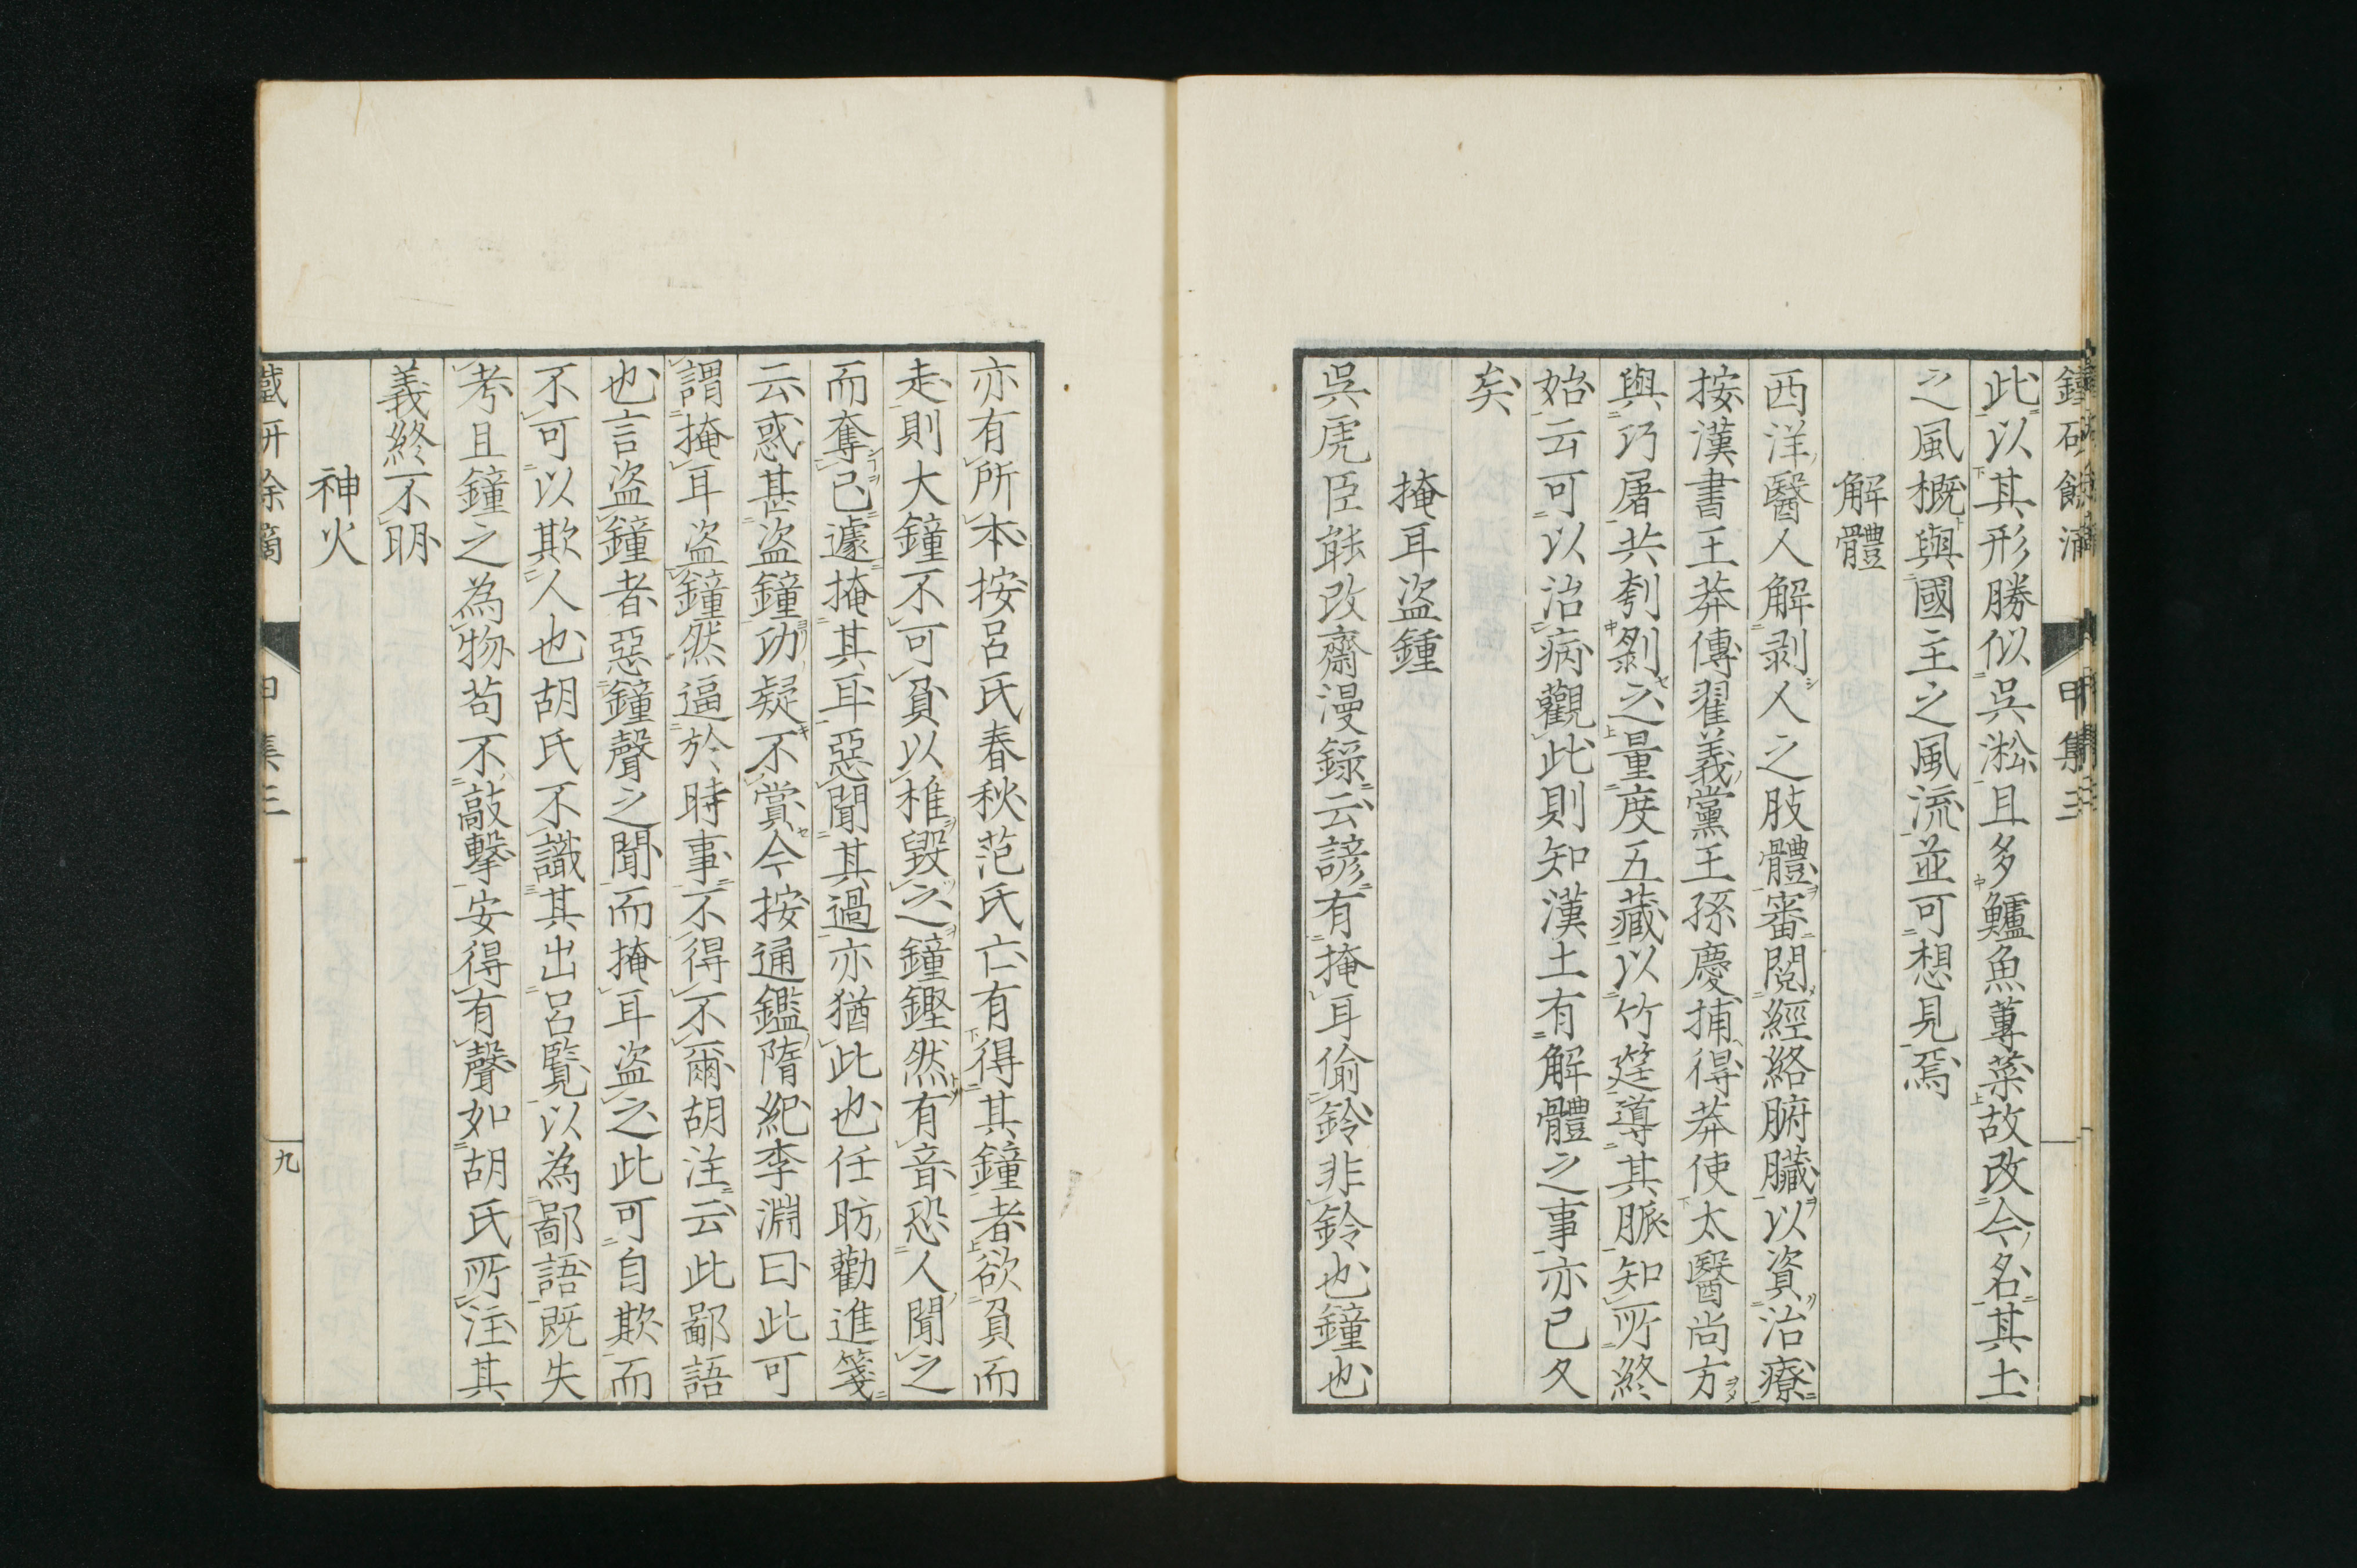 此以其形勝似吳淞且多鱸魚蓴菜故改今名其土
之風概與國主之風流並可想見焉
解體
西洋醫人解剥人之肢體審閱經絡腑臟以資治療
按漢書王莽傳翟義黨王孫慶捕得莽使太醫尚方
與巧屠共刳剝之量度五藏以竹筳導其脈知所終
始云可以治病觀此則知漢土有解體之事亦已久
矣
掩耳盜鍾
吳虎臣能改齋漫錄云諺有掩耳偷鈴非鈴也鐘也
亦有所本按呂氏春秋范氏亡有得其鐘者欲負而
走則大鐘不可負以椎毀之鐘鏗然有音恐人聞之
而奪已遽掩其耳惡聞其過亦猶此也任昉勸進箋
云惑甚盜鐘功疑不賞今按通鑑隋紀李淵曰此可
謂掩耳盜鐘然逼於時事不得不爾胡注云此鄙語
也言盜鐘者惡鐘聲之聞而掩耳盜之此可自欺而
不可以欺人也胡氏不識其出呂覧以為鄙語既失
考且鐘之為物苟不敲擊安得有聲如胡氏所注其
義終不明
神火
甲集三
九